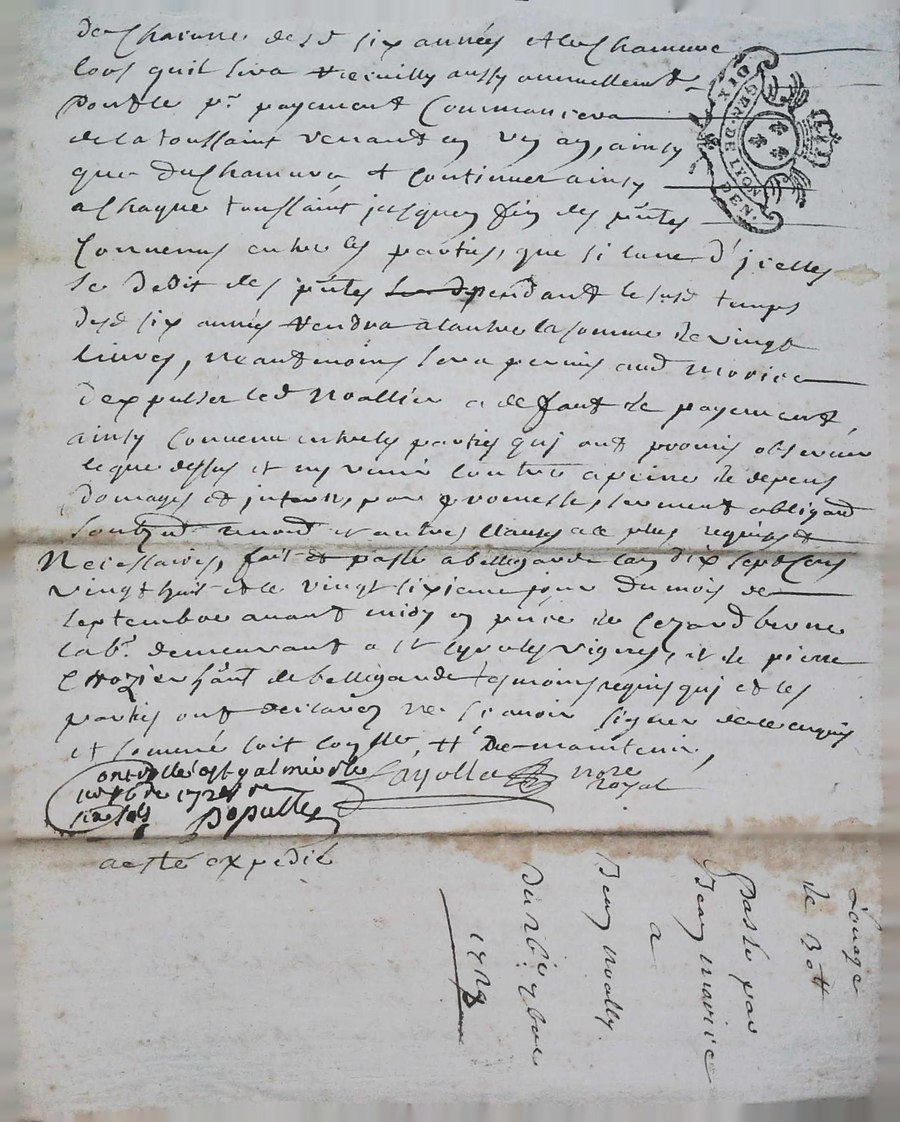 de chacune desd six années et le chanvre
lors quil sera recuilly aussy annuellement
dont le pr. payement commancera
de la toussaint venant en un an, ainsy
que du chanvre et continuer ainsy
a chaque toussaint jusques fin des pntes
convenus entre les parties, que si lune d'jcelles
se dedit des pntes pendant le susd temps
desd six années rendra a lautre la somme de vingt
livres, neantmoins sera permis aud morice
dexpulser led noallier a deffaut de payement,
ainsy convenu entre les parties quj ont promis observer
le que dessus et ny venir contre a peine de depens
domages et jnterets, par promesse, serment obligaon
renon et autres clauses a ce plus requises et
Necessaires, fait et passé a bellegarde lan dix sept cens
vingt huit et le vingt sixieme jour du mois de
septembre avant midy en pnce de
labr. demeurant a st cyr les vignes, et de pierre
Crozier hant de bellegarde tesmoins requis quj et les
parties ont declarez ne sçavoir signer de ce enquis
et sommé soit
Fayolle nore
royal
1728
Populle
a esté expedié
Louage
de 30tt
passé par
Jean morice
a
Jean noally
Du 26e 7bre
1728
GEN. DE LYON
DIX DEN.